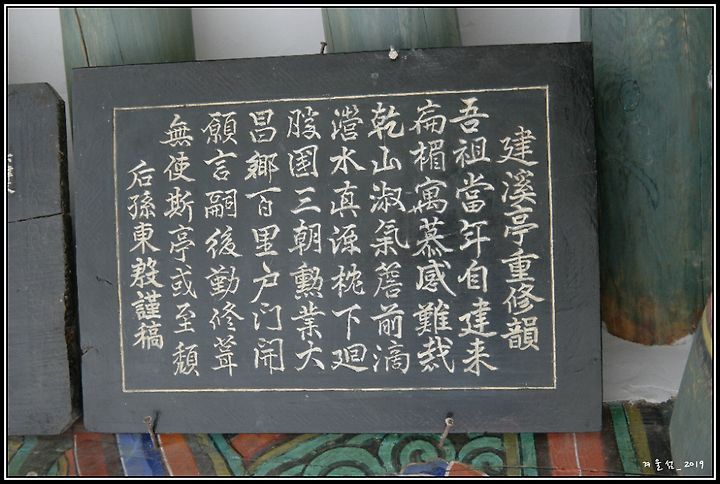 建溪亭重修韻
吾祖當年自建来
扁楣寓慕感難裁
乾山淑氣簷前滴
瀯水真源枕下廻
股囯三朝勳業大
昌鄉百里户门開
願言嗣後勤修葺
無使斯亭或至頹
后孫東敎謹稿
겨울섬_2019